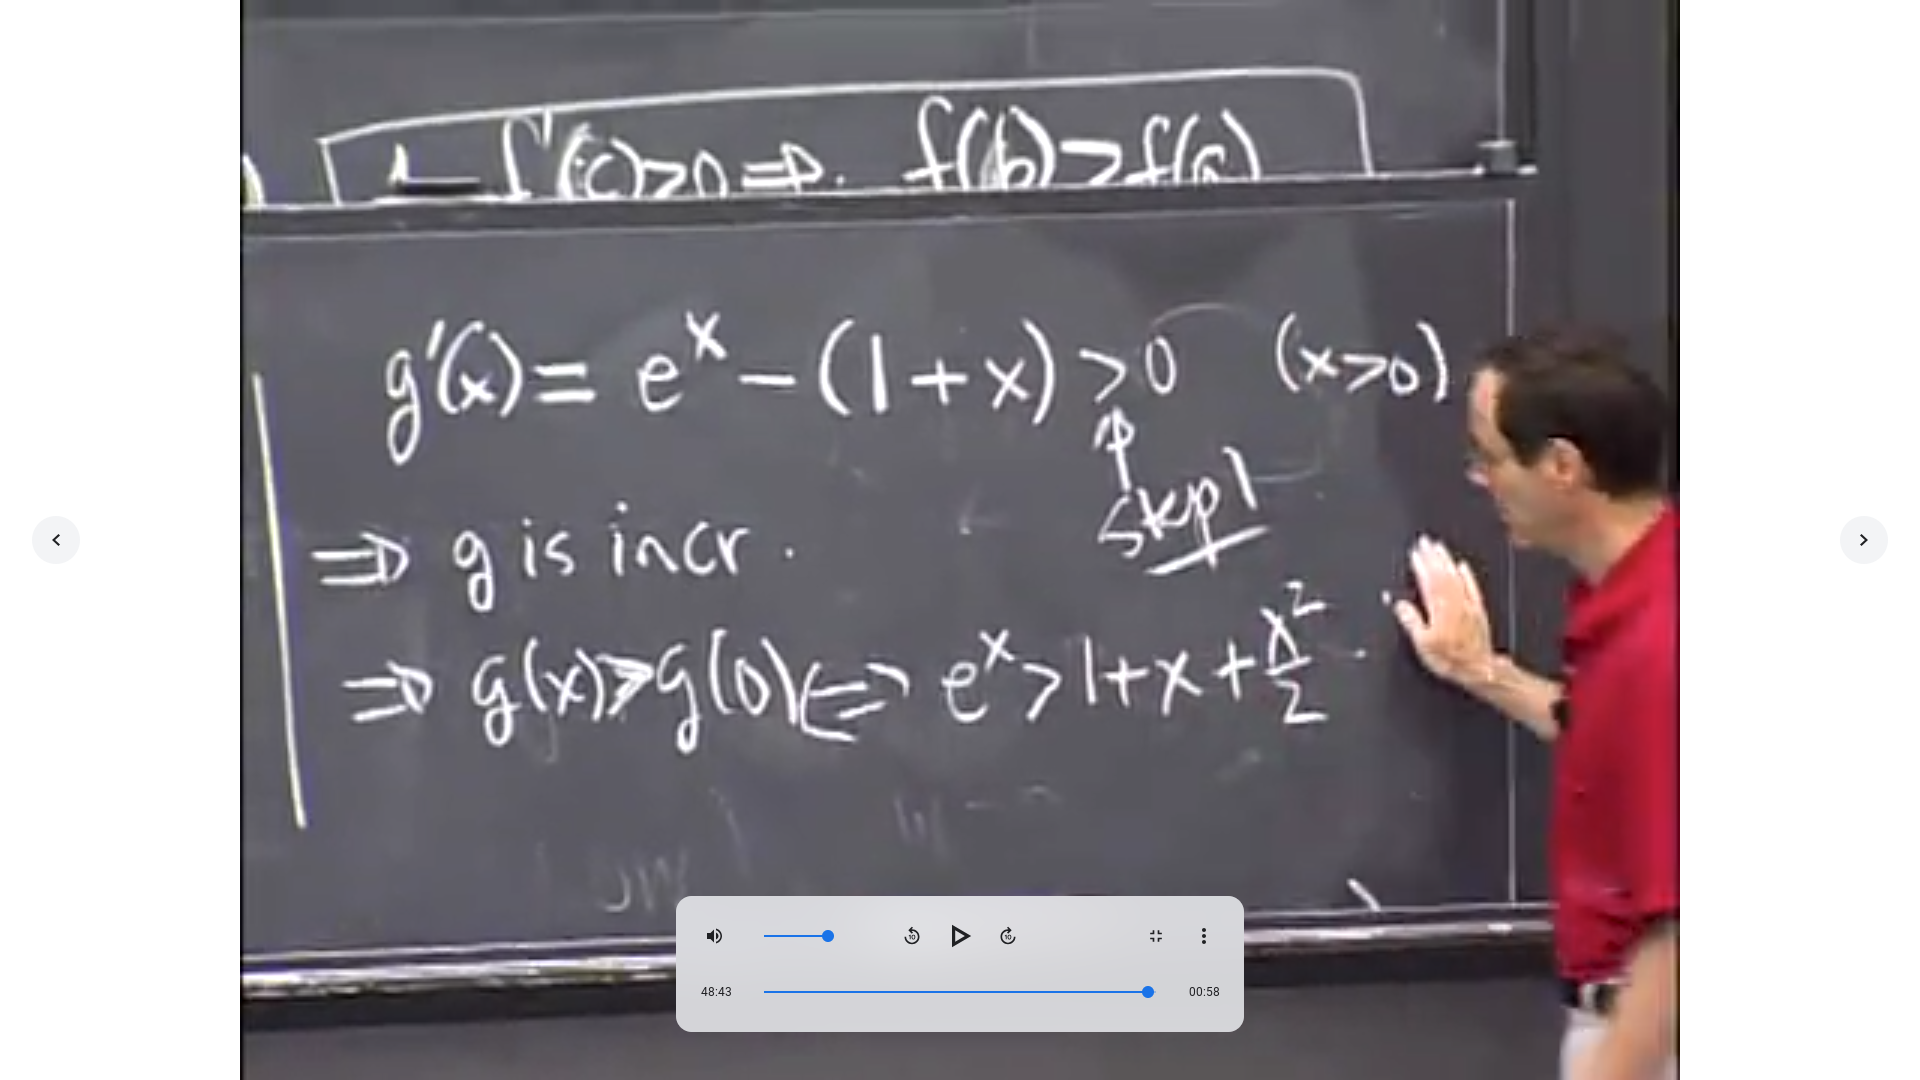 f'(c)>0 ⇒ f(b)>f(a)
g'(x) = e^x - (1+x) >0 (x>0)
↑
step 1
⇒ g is incr.
⇒ g(x)>g(0) ⇔ e^x > 1+x+x²/2 .
10
10
48:43
00:58